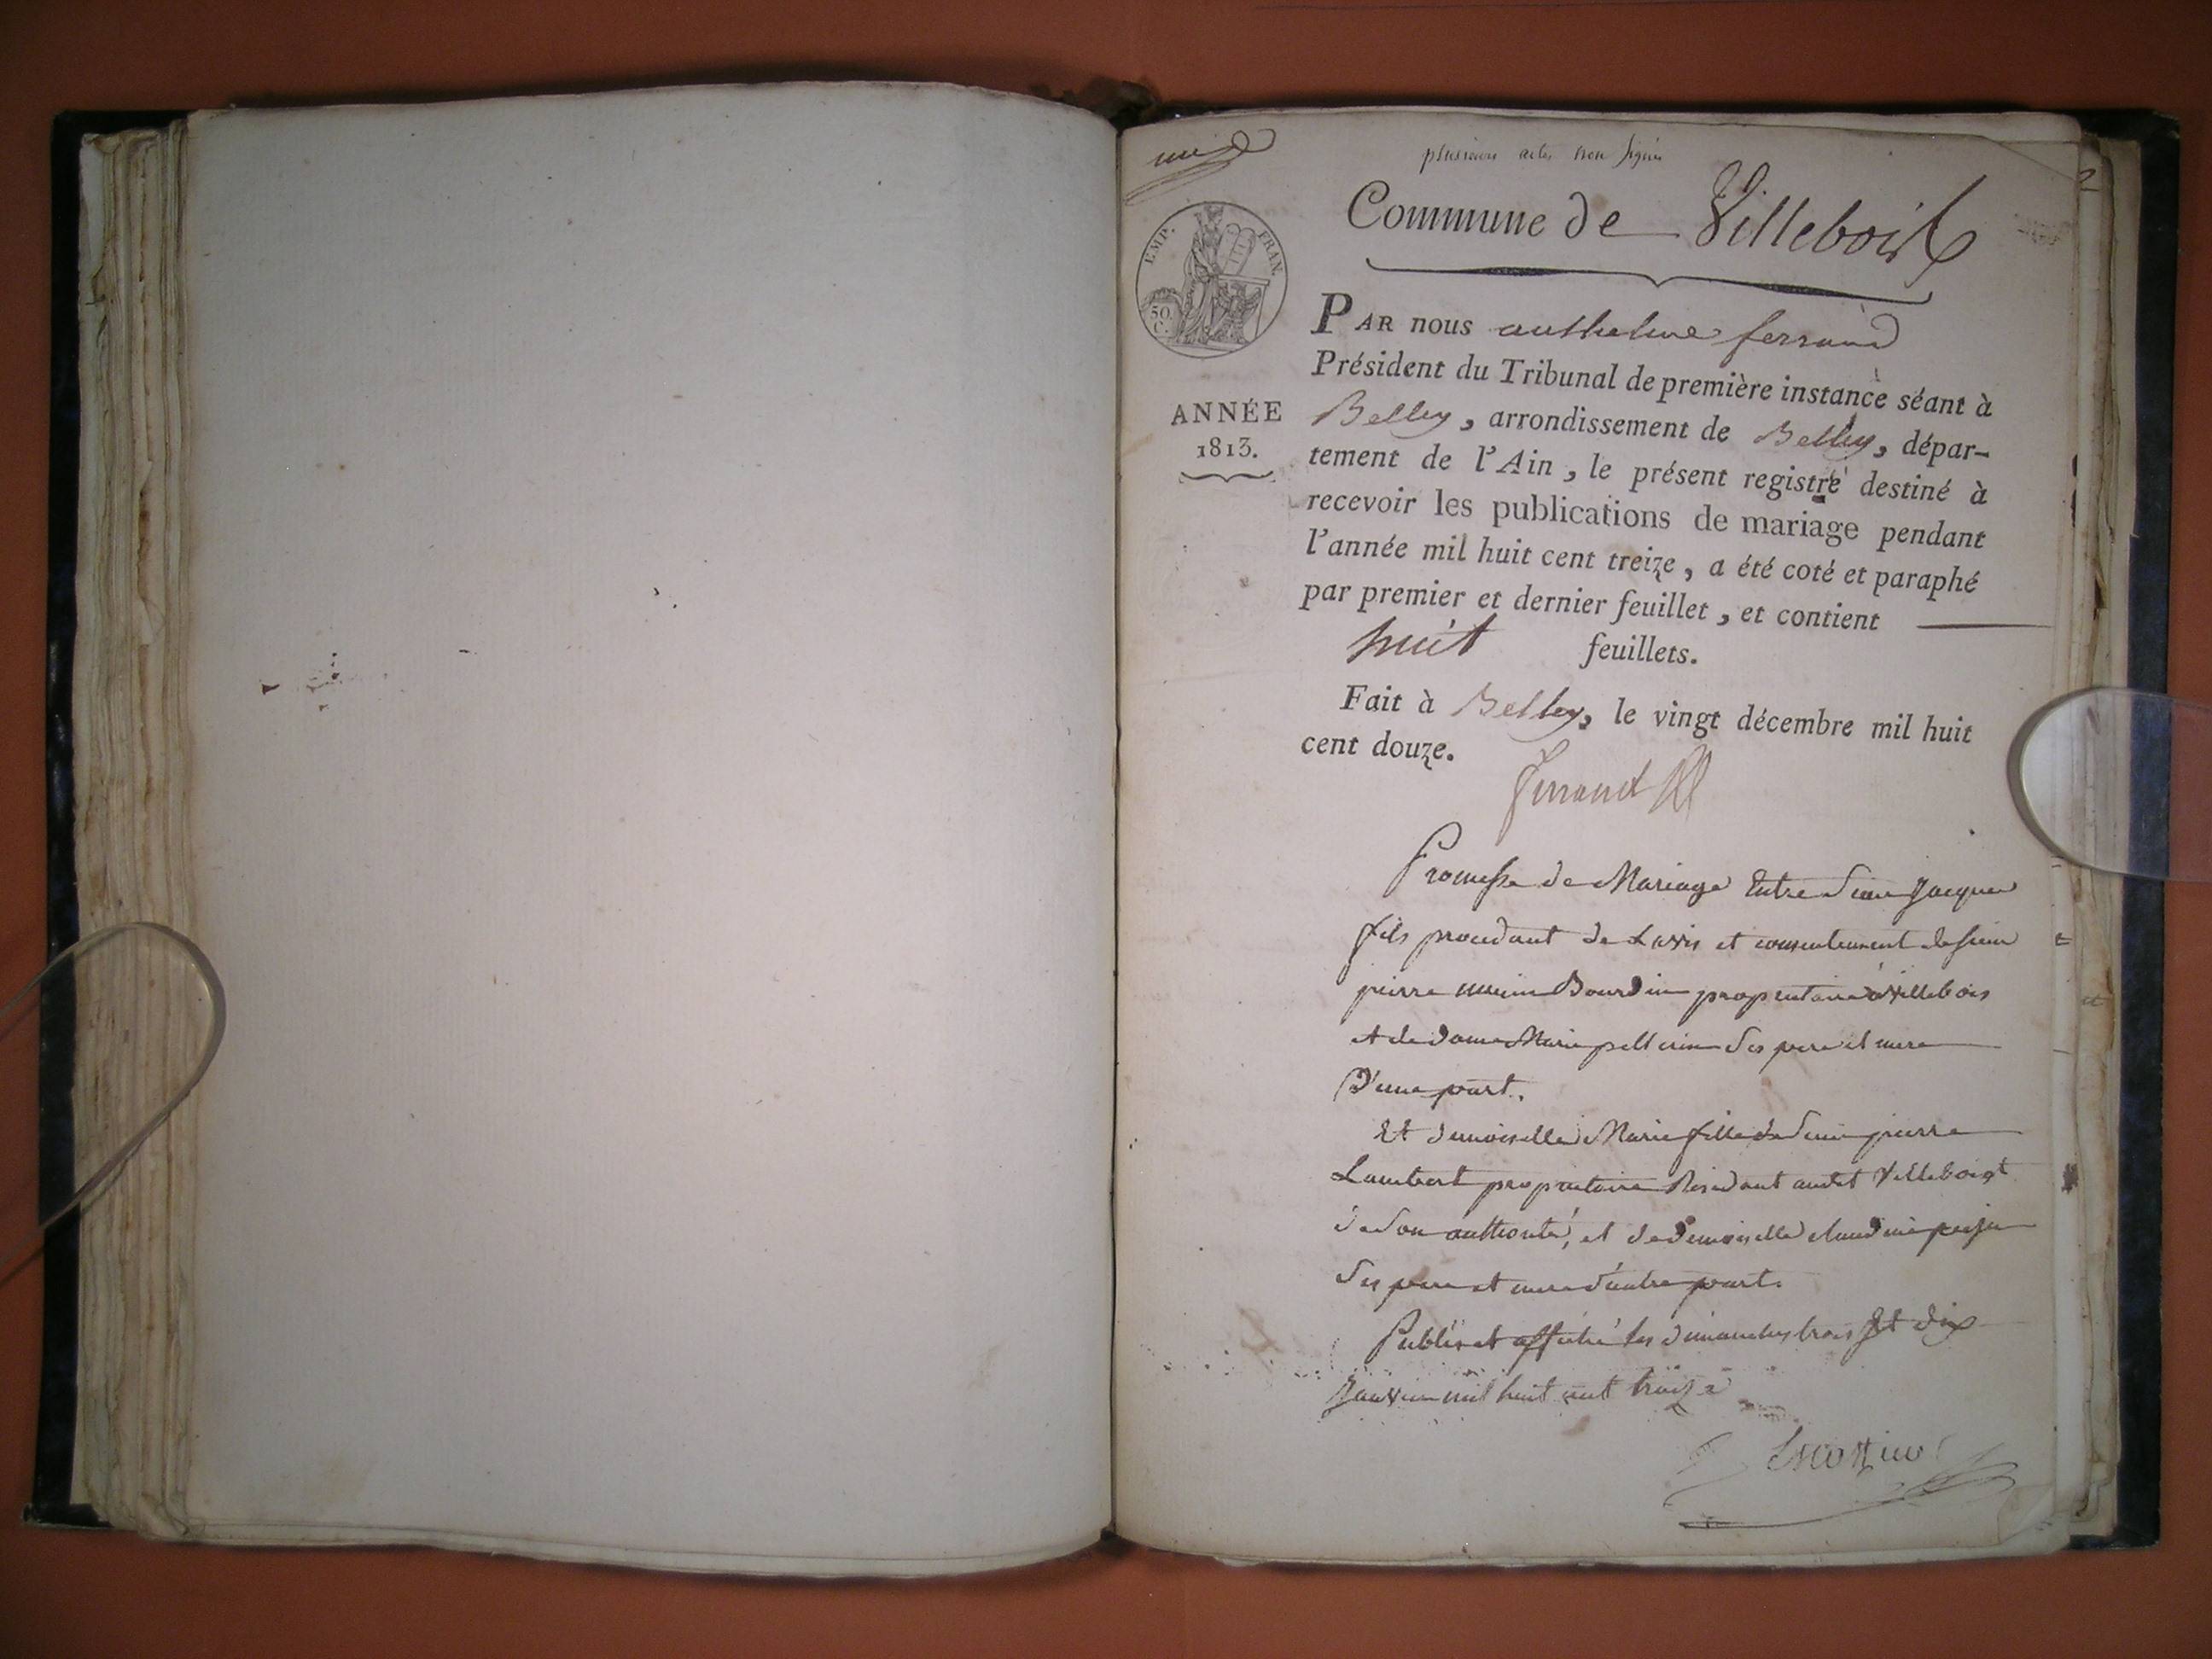 une
plusieurs actes non signés
Commune de Villebois
EMP. FRAN.
50 C.
ANNÉE
1813.
PAR nous anthelme ferrand
Président du Tribunal de première instance séant à
Belley, arrondissement de Belley, dépar-
tement de l'Ain, le présent registre destiné à
recevoir les publications de mariage pendant
l'année mil huit cent treize, a été coté et paraphé
par premier et dernier feuillet, et contient
huit feuillets.
Fait à Belley, le vingt décembre mil huit
cent douze.
Ferrand
Promesse de Mariage Entre Sieur Jacques
fils procedant de Lavis et consentement de sieur
pierre Bourdin proprietaire à Villebois
et de dame Marie pellerin Ses pere et mere
D'une part.
Et demoiselle Marie fille de Sieur pierre
Lambert proprietaire Residant audit Villebois et
de Son authorité, et de demoiselle Claudine
Ses pere et mere d'autre part.
Publié et affiché les dimanches trois Et dix
Janvier mil huit cent treize